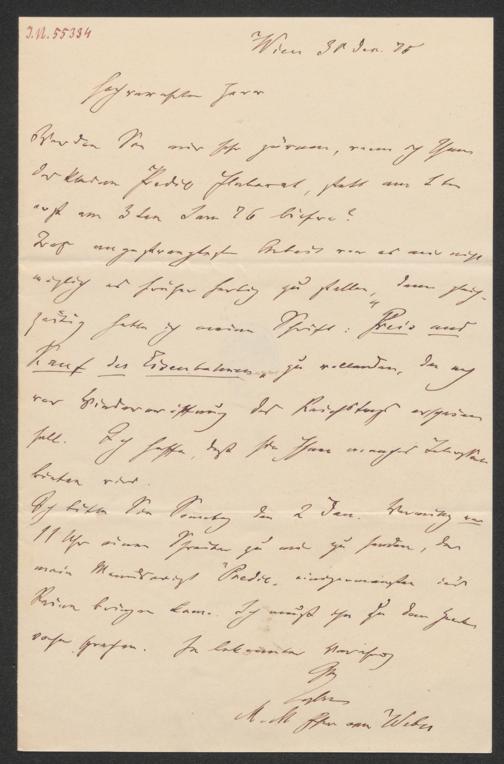 I.N. 55334
Wien 31 Dec. 75
Hochverehrter Herr
Werden Sie mir sehr zürnen, wenn ich Ihnen
das kleine Predil statt am 1ten
erst am 3ten Jan 76 liefre?
Trotz angestrengtester Arbeit war es mir nicht
möglich es früher fertig zu stellen, denn gleich-
zeitig hatte ich meine Schrift: "Preis und
Kauf der Eisenbahnen" zu vollenden, die noch
vor Wiedereröffnung des Reichstags erscheinen
soll. Ich hoffe, daß sie Ihnen manches Interessante
bieten wird.
Ich bitte Sie Sonntag den 2 Jan. Vormittag
11 Uhr einen Schreiber zu mir zu senden, der
mein Manuscript Predil
Reine bringen kann. Ich muß ihn zu dem Zwecke
vorher sprechen. In bekannter
Ihr
M. M. Fhr von Weber